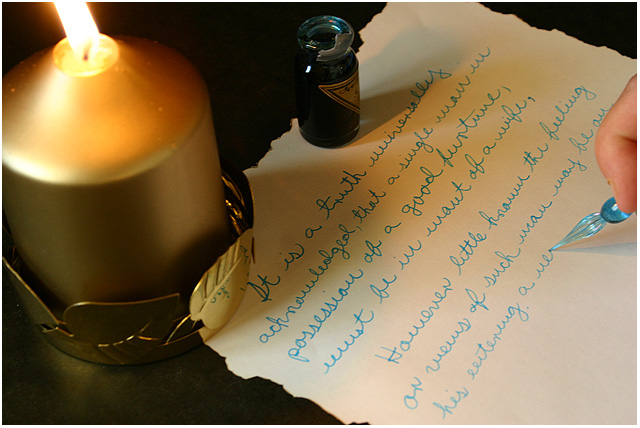 It is a truth universally
acknowledged, that a single man in
possession of a good furtune,
must be in want of a wife,
However little known the feeling
or views of such man may be on
his entering a ne